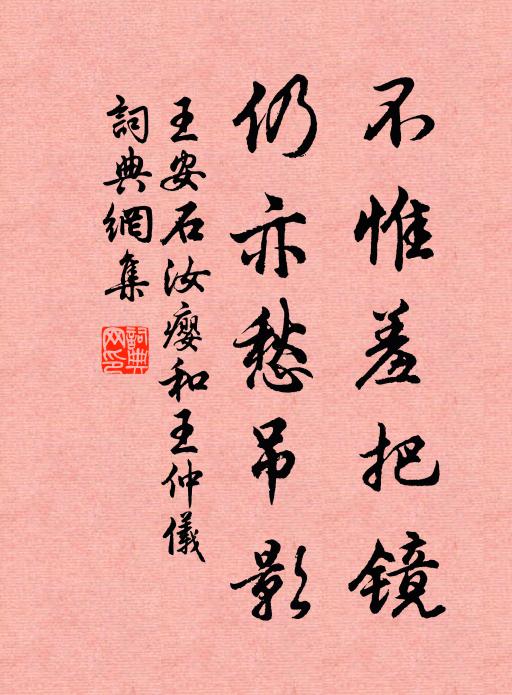 不惟羞把镜
仍亦愁吊影
王安石汝癭和王仲儀
詞典網集
詞典
网印